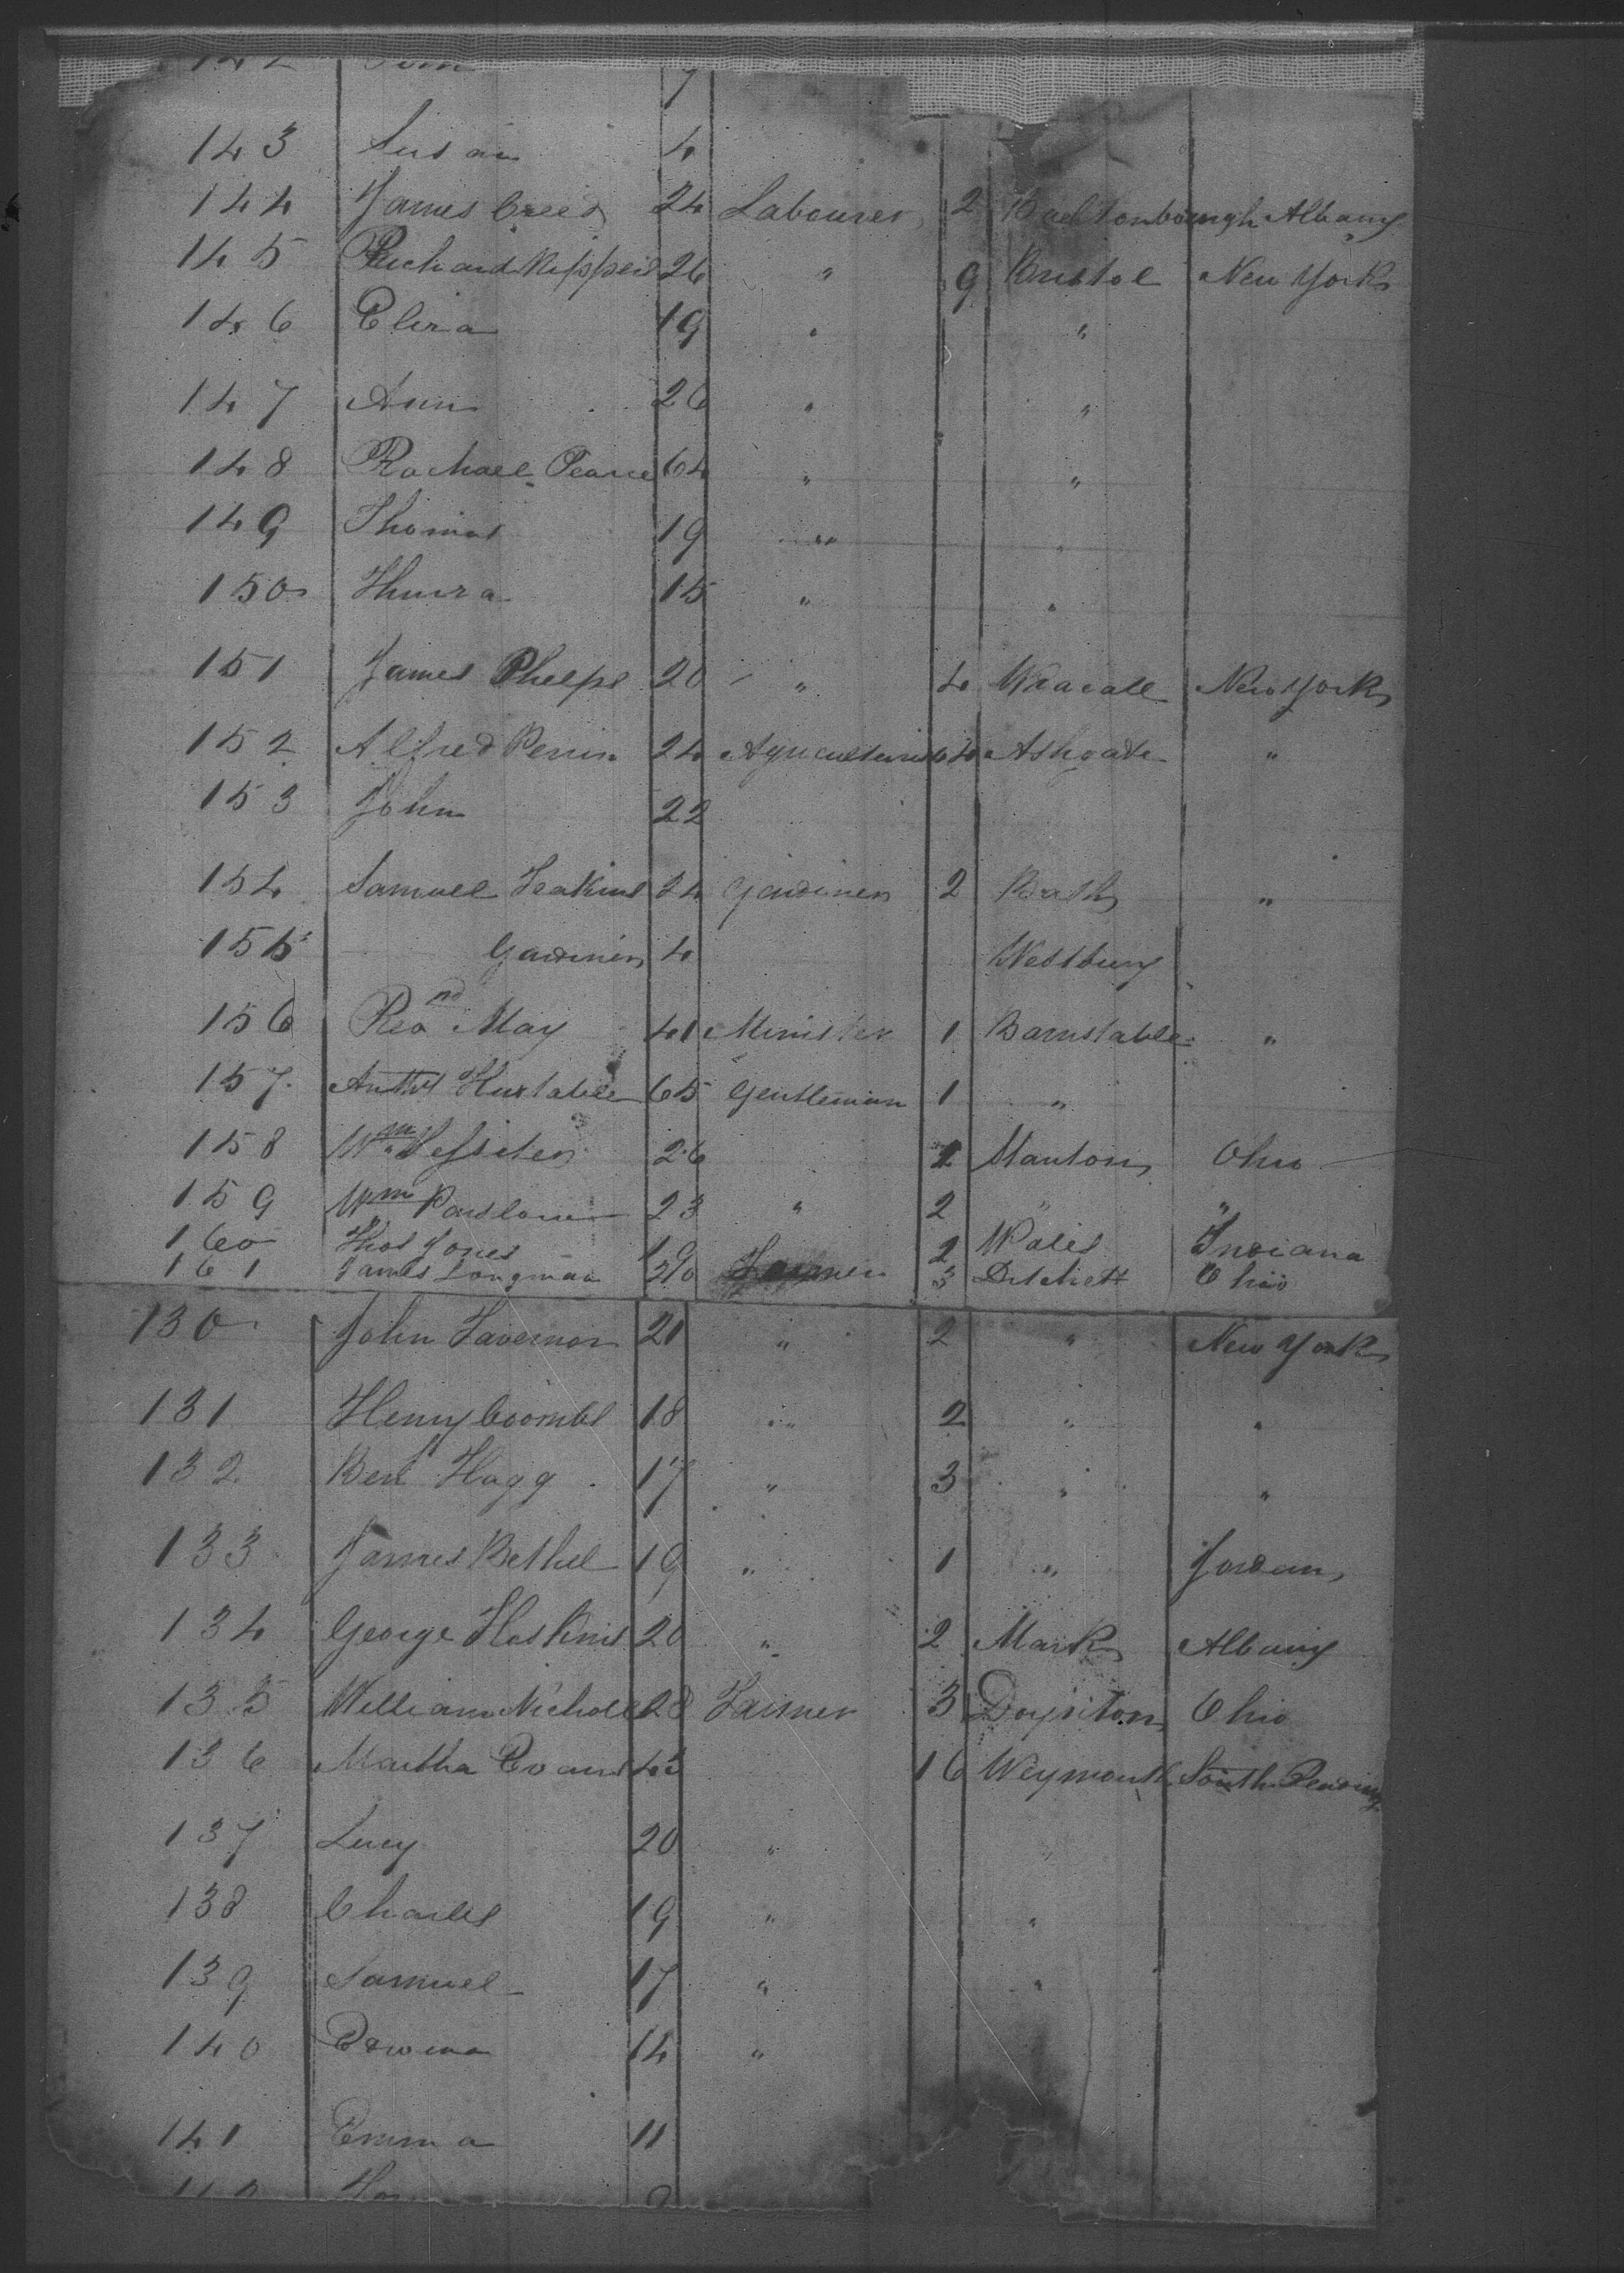 142 Tom 7
143 Susan 4
144 James Creed 24 Labourer 2 Baltonborough Albany
145 Richard Kippen 26 " 9 Bristol New York
146 Eliza 19 " "
147 Ann 26 " "
148 Rachael Pearce 64 " "
149 Thomas 19 " "
150 15 " "
151 James Phelps 20 " 4 Wraxall New York
152 Alfred Perrin 24 Agriculturist 4 Ashcott "
153 John 22
154 Samuel Teakins 24 Gardiner 2 Bath "
155 Gardiner 4 Westbury
156 Revd May 41 Minister 1 Barnstable "
157 Huxtable 65 Gentleman 1 "
158 Wm 26 2 Stanton Ohio
159 Wm Parslow 23 " 2 " "
160 Thos Jones 19 2 Wales Indiana
161 James Longman 30 Farmer 3 Ditchett Ohio
130 John Tavernor 21 " 2 " New York
131 Henry Coombs 18 " 2 " "
132 Ben Hagg 17 " 3 " "
133 James Bethel 19 " 1 " Jordan
134 George Hoskins 20 " 2 Mark Albany
135 William Nicholl 28 Farmer 3 Doynton Ohio
136 Martha Evans 43 16 Weymouth South
137 Lucy 20 "
138 Charles 19 " "
139 Samuel 17 " "
140 Edwina 14 "
141 Emma 11